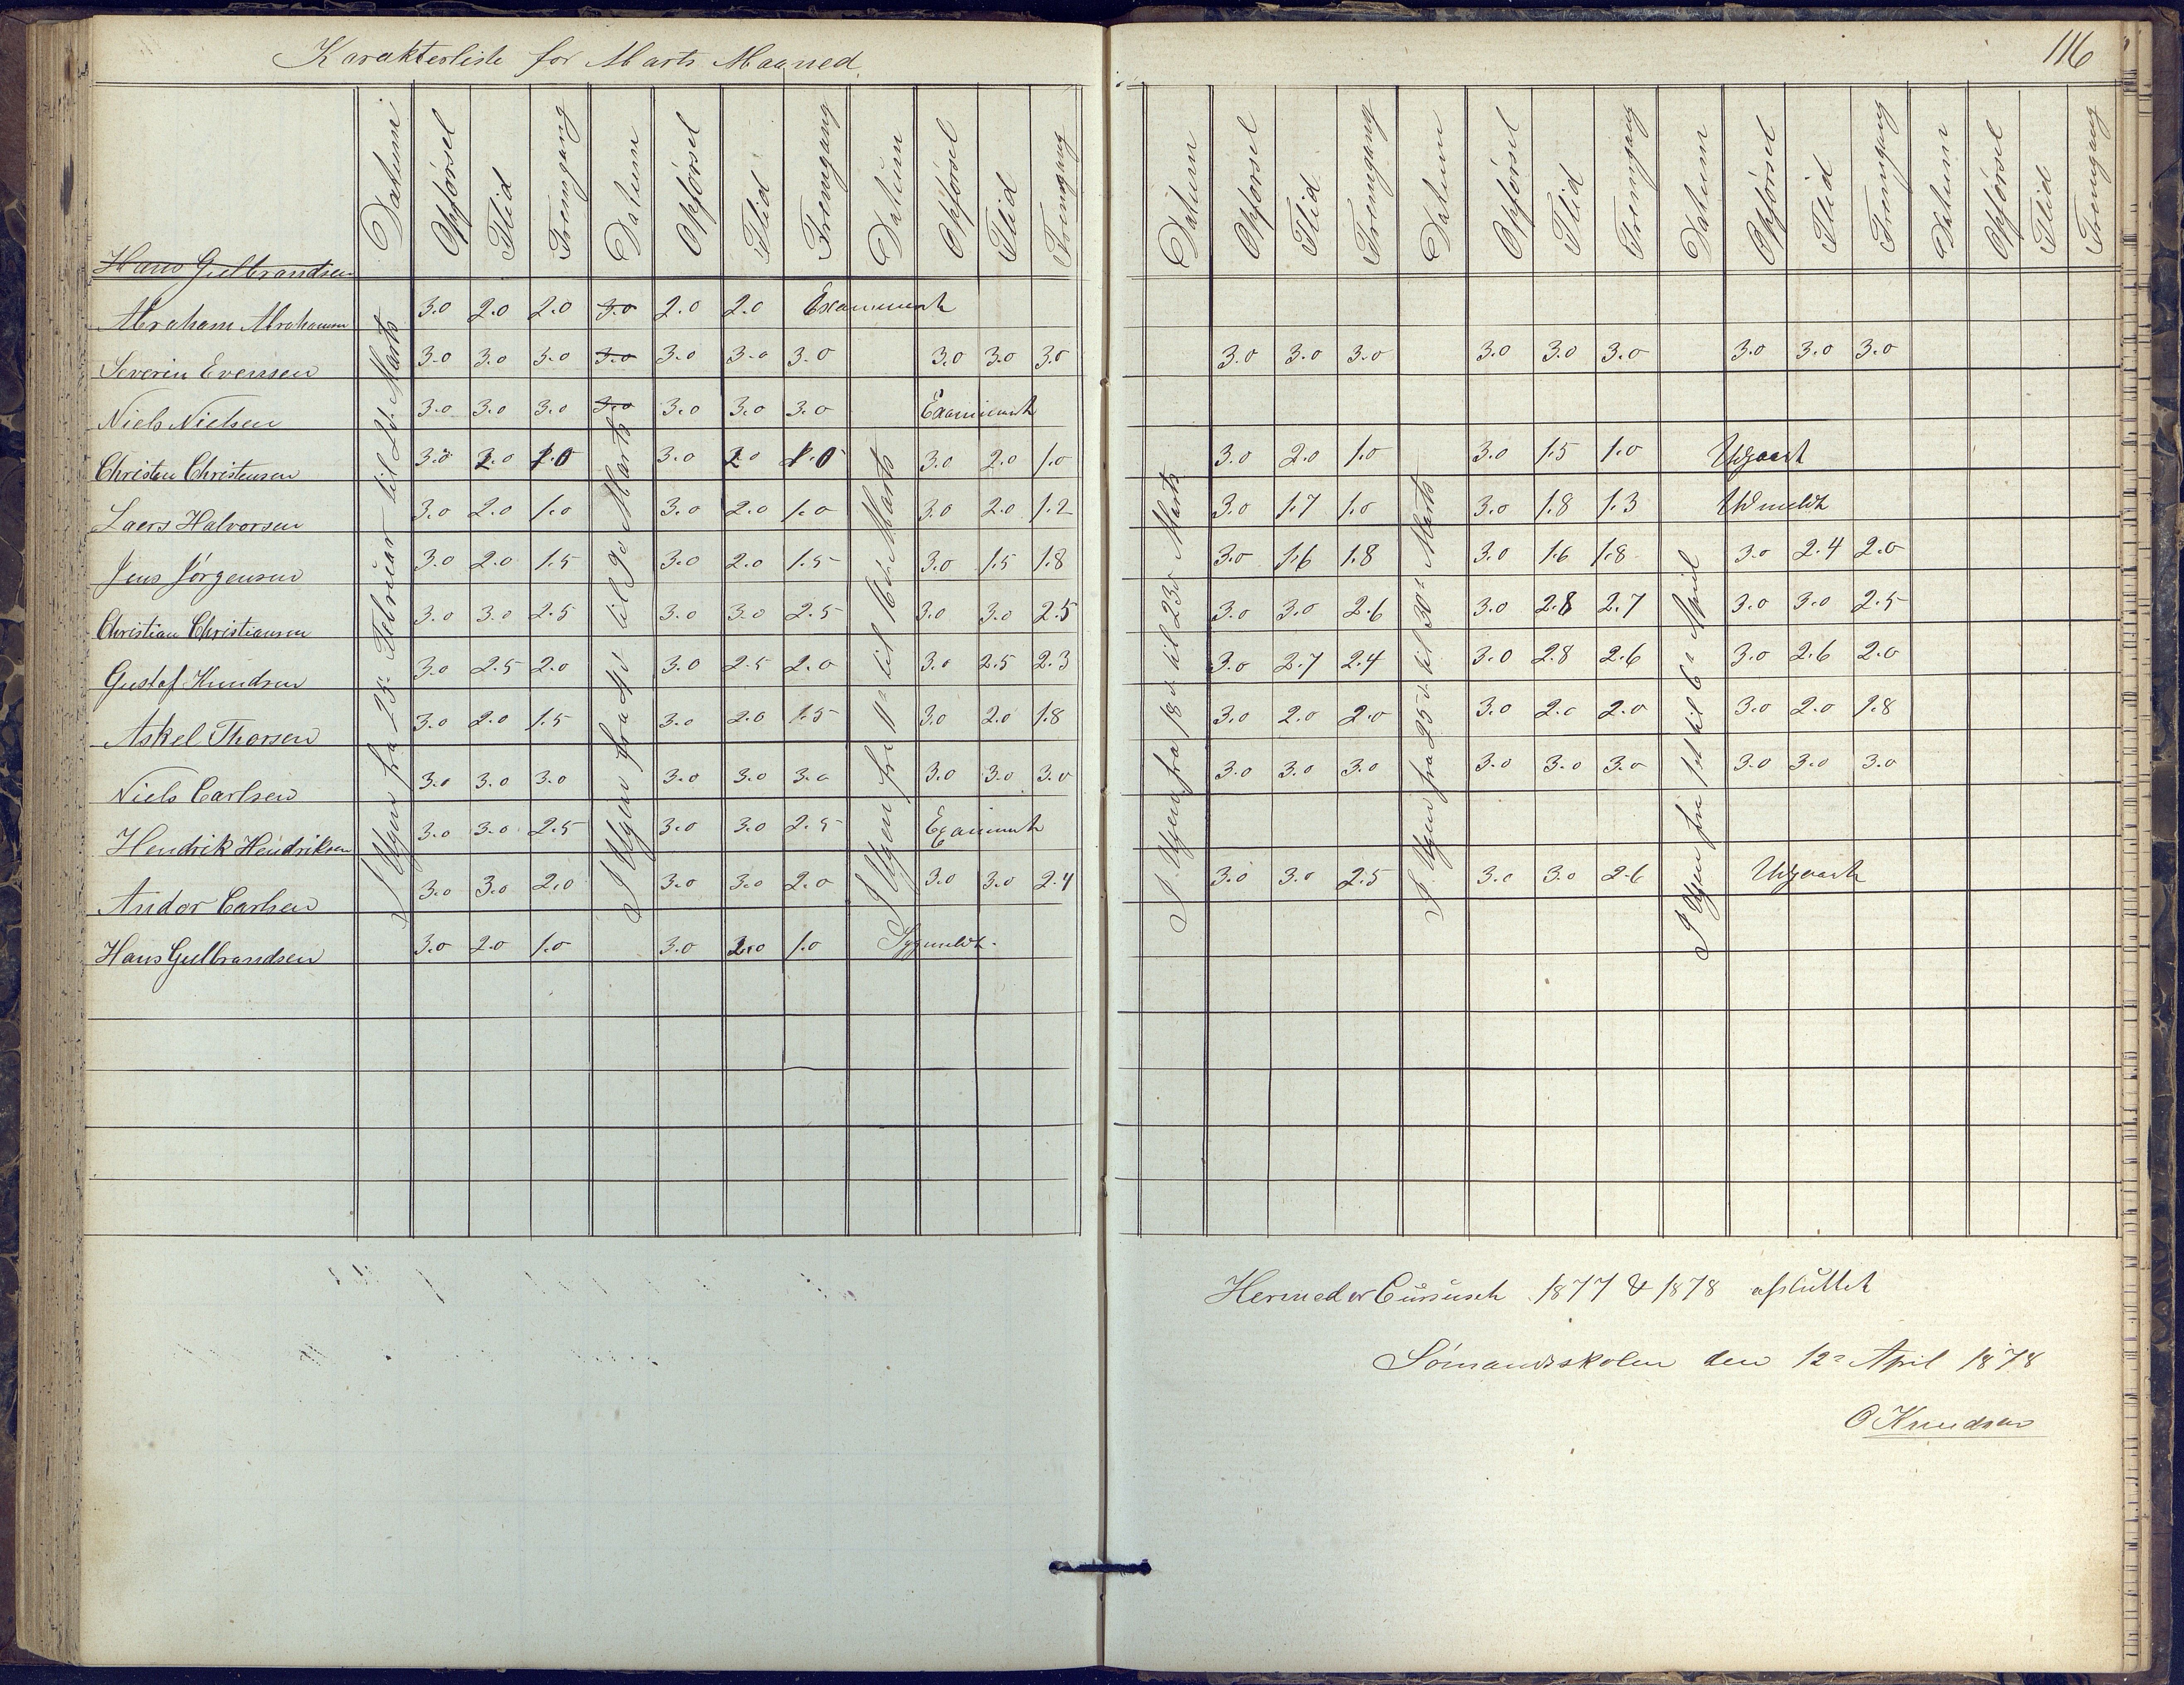 Karakterliste for Marts Maaned
116
Datum Opførsel Flid Fremgang Datum Opførsel Flid Fremgang Datum Opførsel Flid Fremgang Datum Opførsel Flid Fremgang Datum Opførsel Flid Fremgang Datum Opførsel Flid Fremgang Datum Opførsel Flid Fremgang
Hans Gulbrandsen
I Ugen fra 25de Februar til 2den Marts
I Ugen fra 4de til 9de Marts
I Ugen fra 11te til 16de Marts
I Ugen fra 18de til 23de Marts
I Ugen fra 25de til 30te Marts
I Ugen fra 1ste til 6te April
Abraham Abrahamsen 3.0 2.0 2.0 3.0 2.0 2.0 Examineret
Severin Evensen 3.0 3.0 3.0 3.0 3.0 3.0 3.0 3.0 3.0 3.0 3.0 3.0 3.0 3.0 3.0 3.0 3.0 3.0 3.0
Niels Nielsen 3.0 3.0 3.0 3.0 3.0 3.0 3.0 Examineret
Christen Christensen 3.0 2.0 1.0 3.0 2.0 1.0 3.0 2.0 1.0 3.0 2.0 1.0 3.0 1.5 1.0 Udgaaet
Laers Halvorsen 3.0 2.0 1.0 3.0 2.0 1.0 3.0 2.0 1.2 3.0 1.7 1.0 3.0 1.8 1.3 Udmeldt
Jens Jørgensen 3.0 2.0 1.5 3.0 2.0 1.5 3.0 1.5 1.8 3.0 1.6 1.8 3.0 1.6 1.8 3.0 2.4 2.0
Christian Christiansen 3.0 3.0 2.5 3.0 3.0 2.5 3.0 3.0 2.5 3.0 3.0 2.6 3.0 2.8 2.7 3.0 3.0 2.5
Gustaf Knudsen 3.0 2.5 2.0 3.0 2.5 2.0 3.0 2.5 2.3 3.0 2.7 2.4 3.0 2.8 2.6 3.0 2.6 2.0
Askel Thorsen 3.0 2.0 1.5 3.0 2.0 1.5 3.0 2.0 1.8 3.0 2.0 2.0 3.0 2.0 2.0 3.0 2.0 1.8
Niels Carlsen 3.0 3.0 3.0 3.0 3.0 3.0 3.0 3.0 3.0 3.0 3.0 3.0 3.0 3.0 3.0 3.0 3.0 3.0
Hendrik Hendriksen 3.0 3.0 2.5 3.0 3.0 2.5 Examineret
Andor Carlsen 3.0 3.0 2.0 3.0 3.0 2.0 3.0 3.0 2.4 3.0 3.0 2.5 3.0 3.0 2.6 Udgaaet
Hans Gulbrandsen 3.0 2.0 1.0 3.0 2.0 1.0 Sygmeldt.
Hermed er Cursuset 1877 & 1878 afsluttet
Sømandsskolen den 12te April 1878
O Knudsen